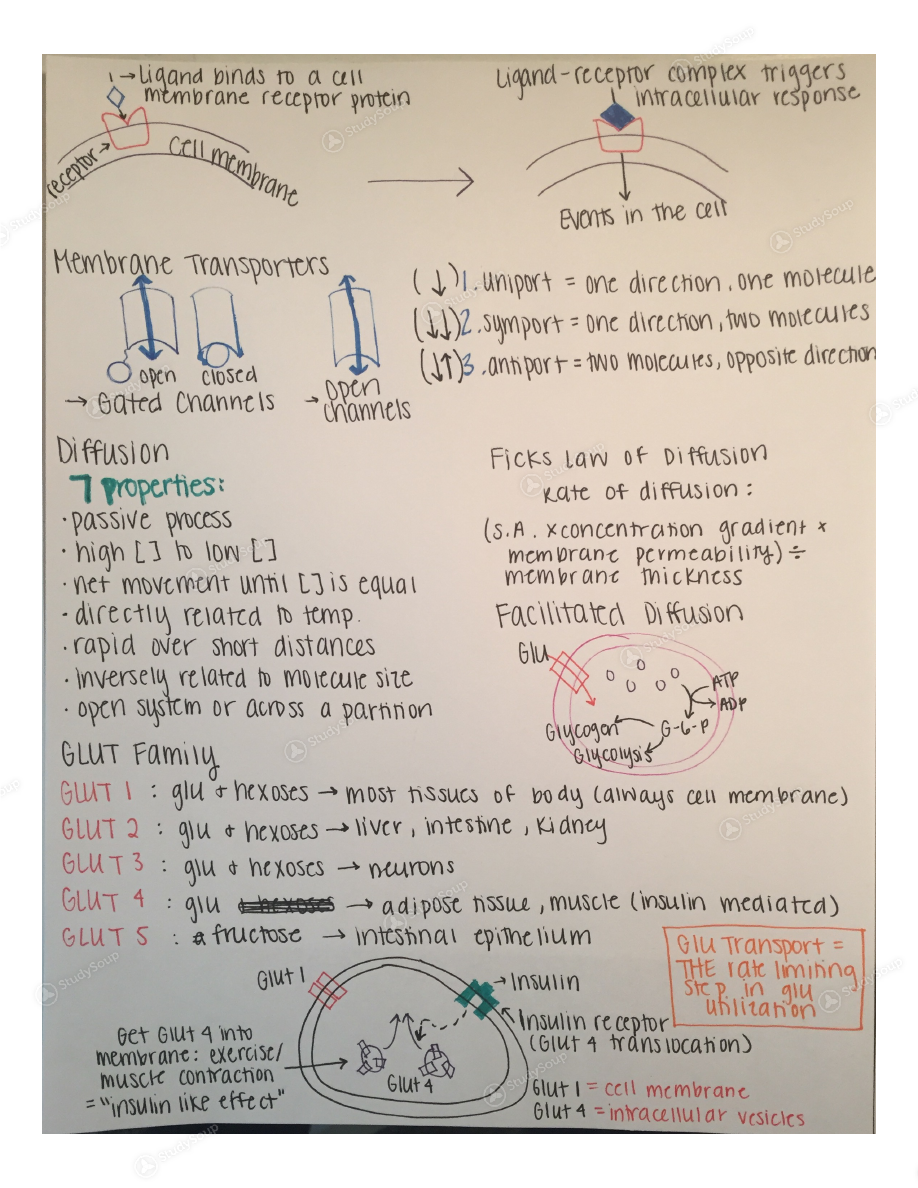 1 → Ligand binds to a cell
membrane receptor protein
receptor →
Cell membrane
Ligand-receptor complex triggers
intracellular response
Events in the cell
Membrane Transporters
open closed
→ Gated Channels
→ Open
channels
(↓) 1. uniport = one direction, one molecule
(↓↓) 2. symport = one direction, two molecules
(↓↑) 3. antiport = two molecules, opposite direction
Diffusion
7 properties:
· passive process
· high [ ] to low [ ]
· net movement until [ ] is equal
· directly related to temp.
· rapid over short distances
· inversely related to molecule size
· open system or across a partition
Ficks Law of Diffusion
Rate of diffusion:
(S.A. x concentration gradient x
membrane permeability) ÷
membrane thickness
Facilitated Diffusion
Glu
ATP
ADP
Glycogon G-6-P
Glycolysis
GLUT Family
GLUT 1 : glu + hexoses → most tissues of body (always cell membrane)
GLUT 2 : glu + hexoses → liver, intestine, kidney
GLUT 3 : glu + hexoses → neurons
GLUT 4 : glu + hexoses → adipose tissue, muscle (insulin mediated)
GLUT 5 : fructose → intestinal epithelium
Glu Transport =
THE rate limiting
step in glu
utilization
Glut 1
→ Insulin
Insulin receptor
(Glut 4 translocation)
Get Glut 4 into
membrane: exercise/
muscle contraction
= "insulin like effect"
Glut 4
Glut 1 = cell membrane
Glut 4 = intracellular vesicles
StudySoup